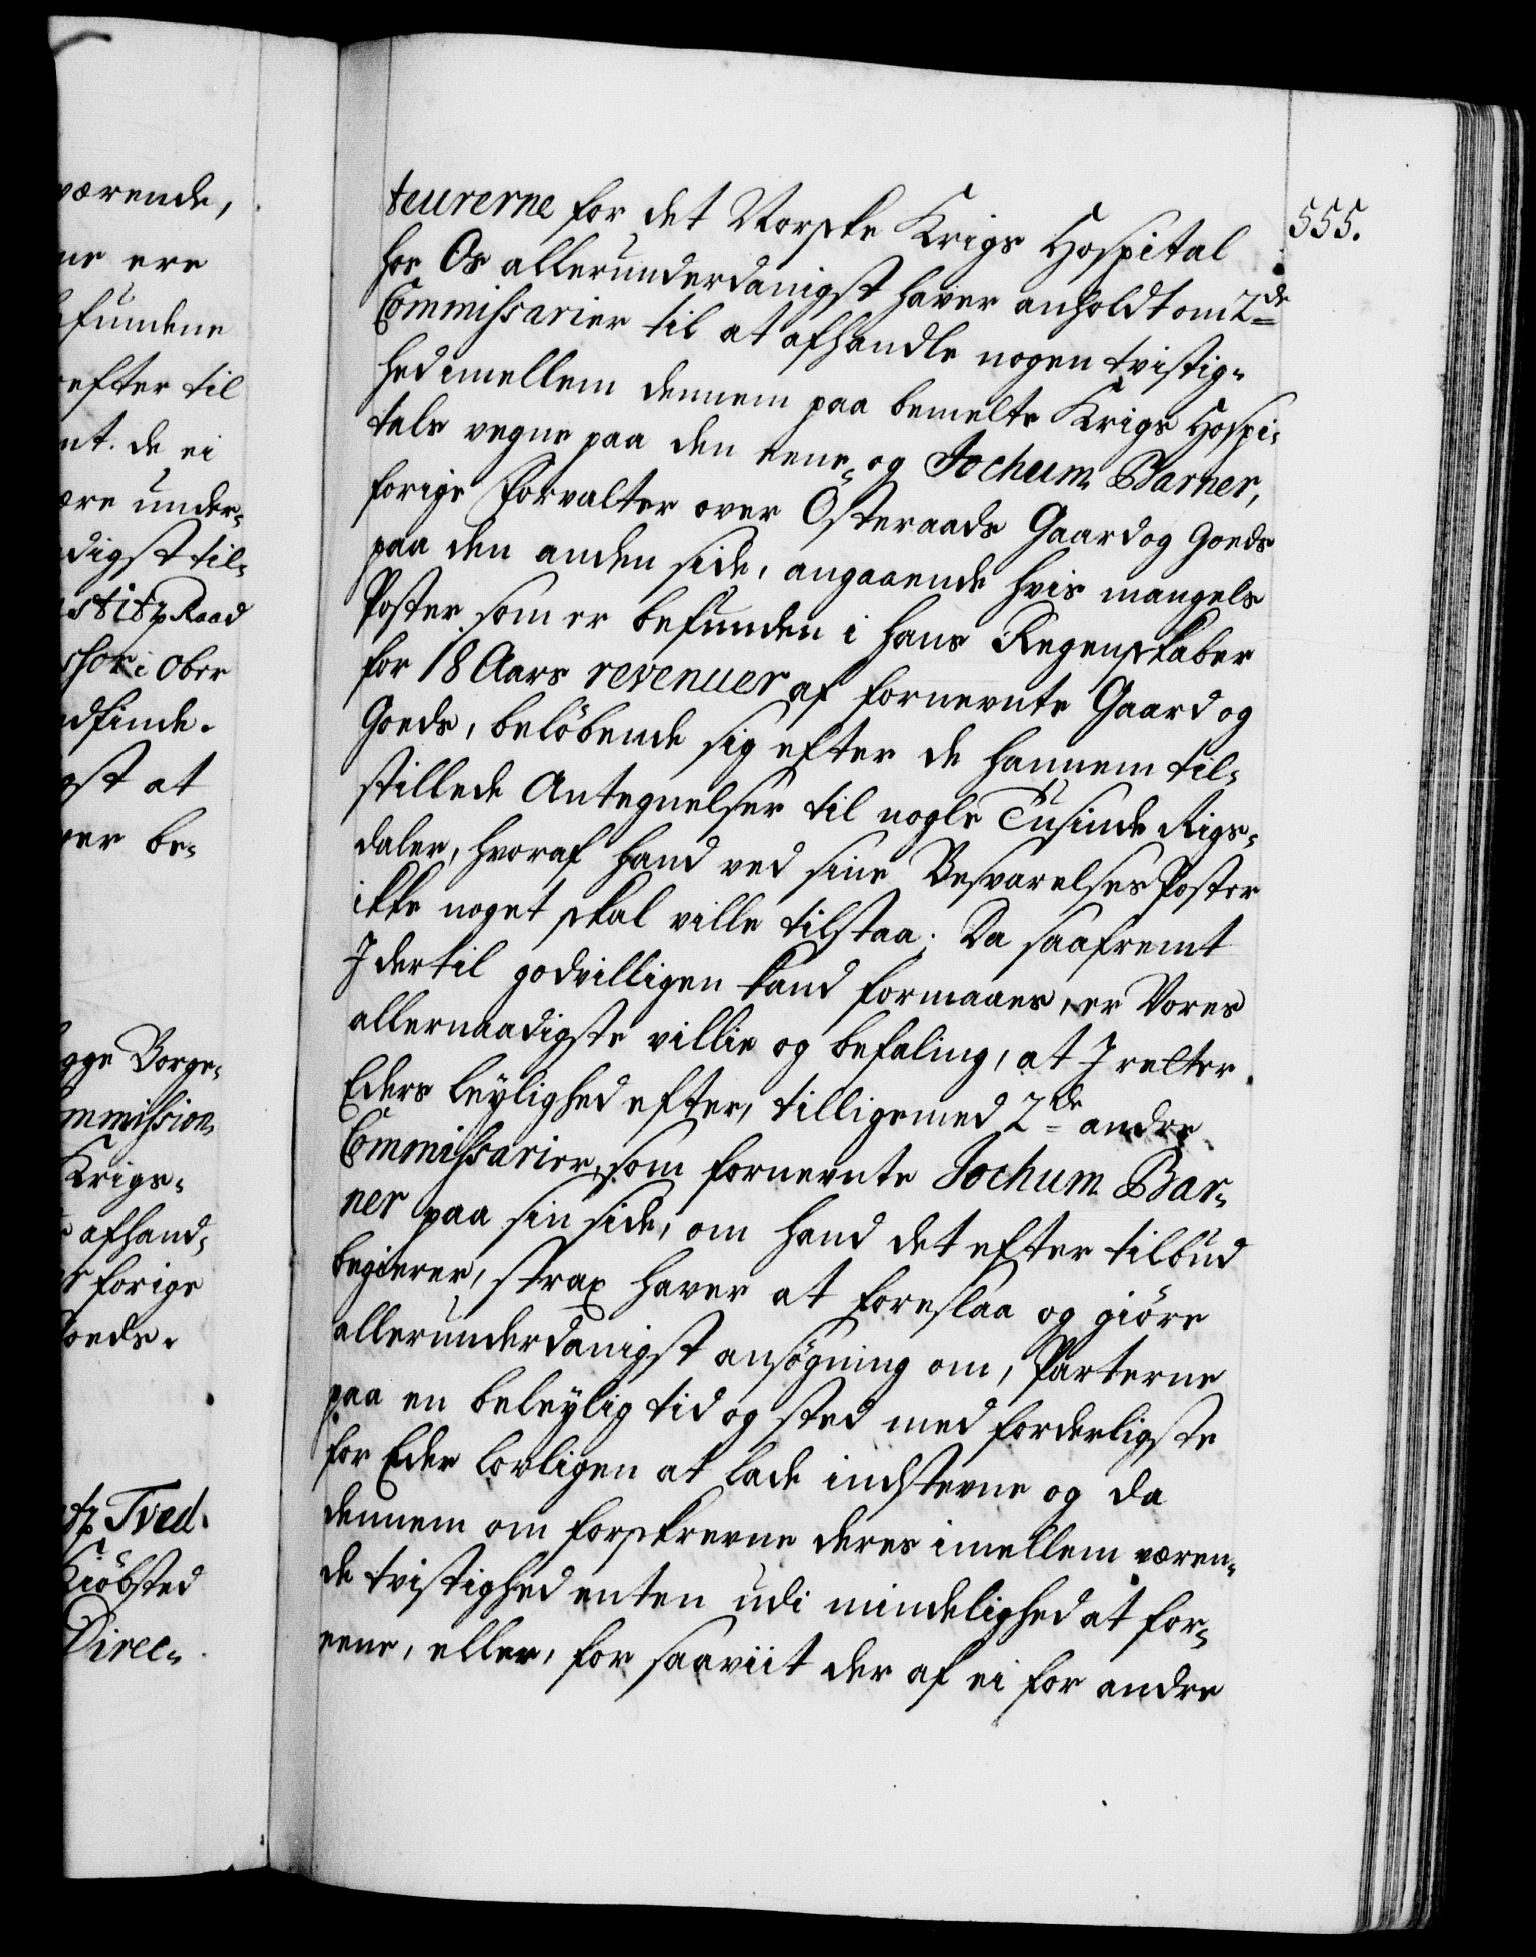 værende,
ne ere
fundne
efter til
nt. de ei
ære under-
digst til-
stitz Raad
ssor i Ober
dfinde.
gst at
ver be-
gge Borge-
mmission
Krigs-
afhand-
forige
oeds.
tz Tved.
Kiöbsted
Direc-
555.
teurerne for det Norske Krigs Hospital
hos Os allerunderdanigst haver anholdt om 2de
Commissarier til at afhandle nogen tvistig-
hed imellem dennem paa bemelte Krigs Hospi-
tals vegne paa den eene, og Jochum Barner,
forige Forvalter over Österaads Gaard og Goeds
paa den anden side, angaaende hvis mangels
Poster som er befunden i hans Regenskaber
for 18 Aars revenuer af fornevnte Gaard og
Goeds, belöbende sig efter de hannem til-
stillede Antegnelser til nogle Tusinde Rigs-
daler, hvoraf hand ved sine Besvarelses Poster
ikke noget skal ville tilstaa; Da saafremt
I dertil godvilligen kand formaaes, er Vores
allernaadigste villie og befaling, at I retter
Eders leylighed efter, tilligemed 2de andre
Commissarier, som fornevnte Jochum Bar-
ner paa sin side, om hand det efter tilbud
begierer, strax haver at foreslaa og giöre
allerunderdanigst ansögning om, Parterne
paa en beleylig tid og sted med forderligste
for Eder lovligen at lade indstevne og da
dennem om forskrevne deres imellem væren-
de tvistighed enten udi mindelighed at for-
eene, eller, for saaviit der af ei for andre